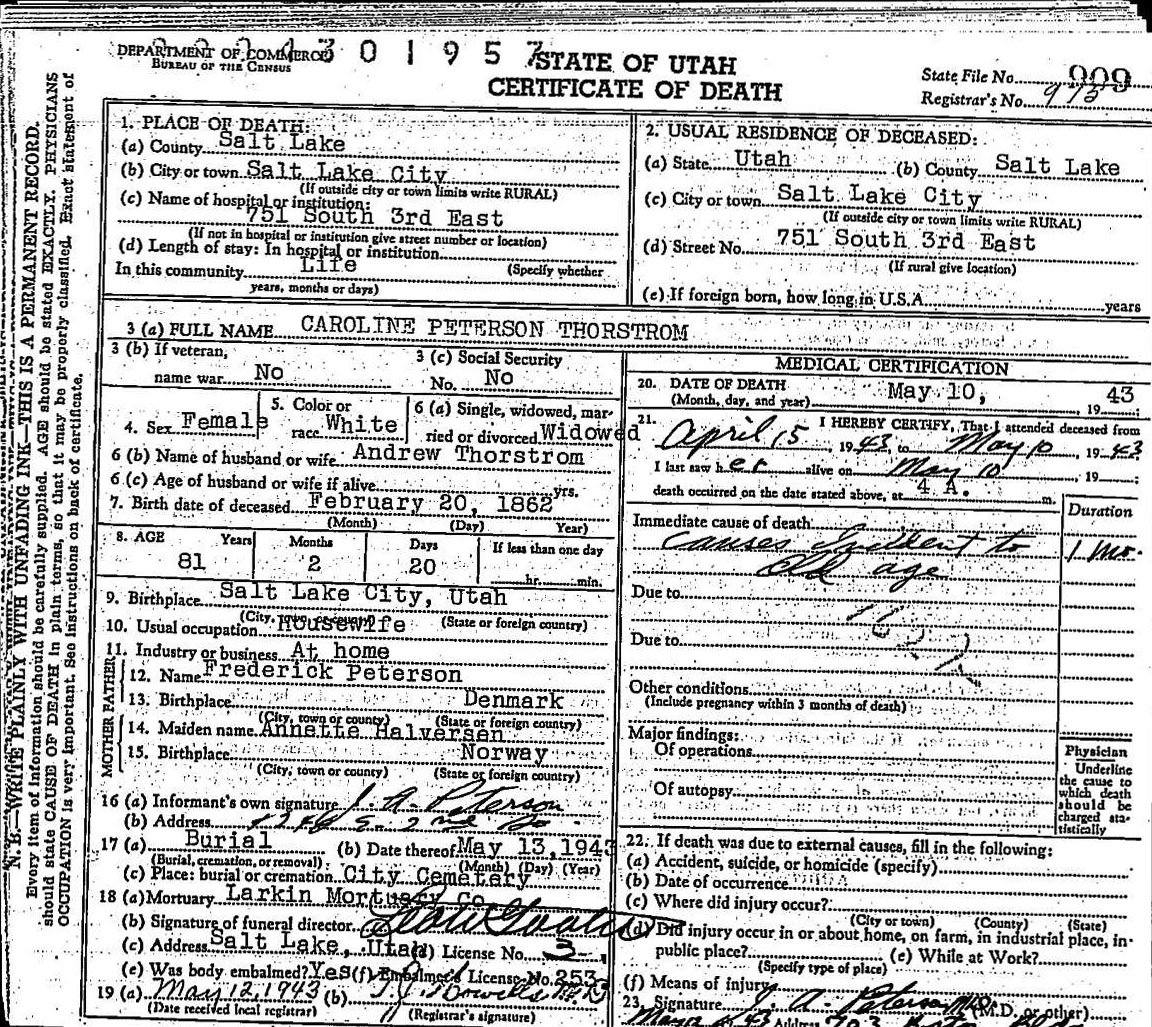 N.B.—WRITE PLAINLY WITH UNFADING INK—THIS IS A PERMANENT RECORD.
Every item of information should be carefully supplied. AGE should be stated EXACTLY. PHYSICIANS
should state CAUSE OF DEATH in plain terms, so that it may be properly classified. Exact statement of
OCCUPATION is very important. See instructions on back of certificate.
DEPARTMENT OF COMMERCE
BUREAU OF THE CENSUS
301957
STATE OF UTAH
CERTIFICATE OF DEATH
State File No. 909
Registrar's No. 913
1. PLACE OF DEATH:
(a) County Salt Lake
(b) City or town Salt Lake City
(If outside city or town limits write RURAL)
(c) Name of hospital or institution:
751 South 3rd East
(If not in hospital or institution give street number or location)
(d) Length of stay: In hospital or institution
In this community Life (Specify whether
years, months or days)
2. USUAL RESIDENCE OF DECEASED:
(a) State Utah (b) County Salt Lake
(c) City or town Salt Lake City
(If outside city or town limits write RURAL)
(d) Street No. 751 South 3rd East
(If rural give location)
(e) If foreign born, how long in U.S.A. years
3 (a) FULL NAME CAROLINE PETERSON THORSTROM
3 (b) If veteran,
name war No
3 (c) Social Security
No. No
4. Sex Female
5. Color or
race White
6 (a) Single, widowed, mar-
ried or divorced Widowed
6 (b) Name of husband or wife Andrew Thorstrom
6 (c) Age of husband or wife if alive yrs.
7. Birth date of deceased February 20, 1862
(Month) (Day) Year)
8. AGE Years Months Days If less than one day
81 2 20 hr. min.
9. Birthplace Salt Lake City, Utah
(City, town or county) (State or foreign country)
10. Usual occupation Housewife
11. Industry or business At home
FATHER
12. Name Frederick Peterson
13. Birthplace Denmark
(City, town or county) (State or foreign country)
MOTHER
14. Maiden name Annette Halversen
15. Birthplace Norway
(City, town or county) (State or foreign country)
16 (a) Informant's own signature J. A. Peterson
(b) Address 2nd So.
17 (a) Burial (b) Date thereof May 13, 1943
(Burial, cremation, or removal) (Month) (Day) (Year)
(c) Place: burial or cremation City Cemetery
18 (a) Mortuary Larkin Mortuary Co.
(b) Signature of funeral director
(c) Address Salt Lake, Utah (d) License No. 3
(e) Was body embalmed? Yes (f) Embalmer's License No. 253
19 (a) May 12, 1943 (b)
(Date received local registrar) (Registrar's signature)
MEDICAL CERTIFICATION
20. DATE OF DEATH May 10, 1943
(Month, day, and year)
21. I HEREBY CERTIFY, That I attended deceased from
April 15, 1943, to May 10, 1943
I last saw her alive on May 10, 19
death occurred on the date stated above, at 4 A. m.
Duration
Immediate cause of death
Causes Incident to 1 mo.
old age
Due to
Due to
Other conditions
(Include pregnancy within 3 months of death)
Major findings:
Of operations
Of autopsy
Physician
Underline
the cause to
which death
should be
charged sta-
tistically
22. If death was due to external causes, fill in the following:
(a) Accident, suicide, or homicide (specify)
(b) Date of occurrence
(c) Where did injury occur?
(City or town) (County) (State)
(d) Did injury occur in or about home, on farm, in industrial place, in-
public place? (e) While at Work?
(Specify type of place)
(f) Means of injury
23. Signature J. A. Peterson M.D. (M.D. or other)
Address